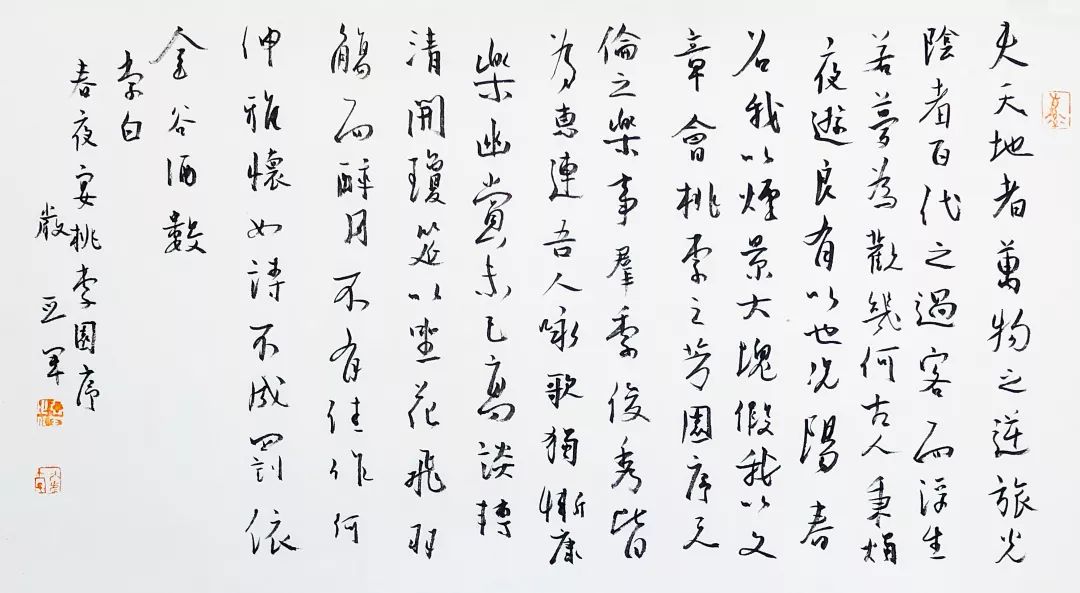 夫天地者萬物之逆旅光
陰者百代之過客而浮生
若夢為歡幾何古人秉燭
夜遊良有以也況陽春
召我以煙景大塊假我以文
章會桃李之芳園序天
倫之樂事羣季俊秀皆
為惠連吾人咏歌獨慚康
樂幽賞未已高談轉
清開瓊筵以坐花飛羽
觴而醉月不有佳作何
伸雅懷如詩不成罰依
金谷酒數
李白
春夜宴桃李園序
嚴亞軍